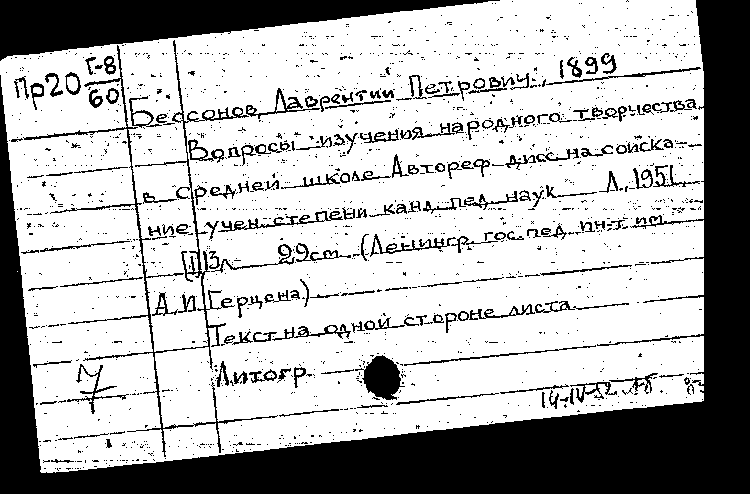 Пр20 Г-8/60
Бессонов, Лаврентий Петрович, 1899
Вопросы изучения народного творчества
в средней школе Автореф. дисс на соиска-
ние учен. степени канд. пед. наук Л., 1951.
[I] 13 л. 29 см. (Ленингр. гос. пед. ин-т им.
А. И. Герцена)
Текст на одной стороне листа.
Литогр.
14-IV-52